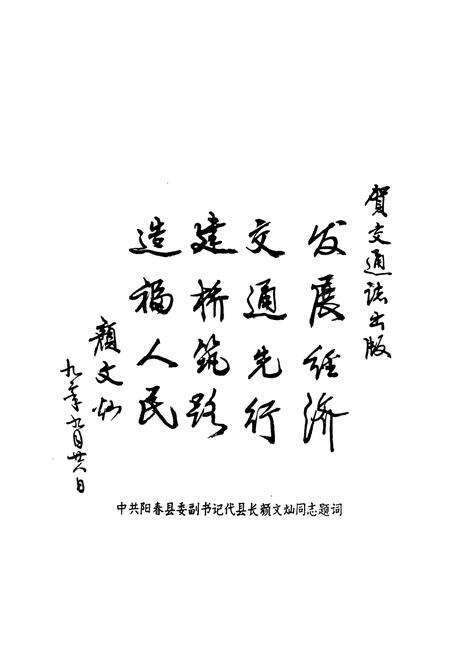 贺交通志出版
发展经济
交通先行
建桥筑路
造福人民
颜文灿
九〇年九月廿八日
中共阳春县委副书记代县长颜文灿同志题词